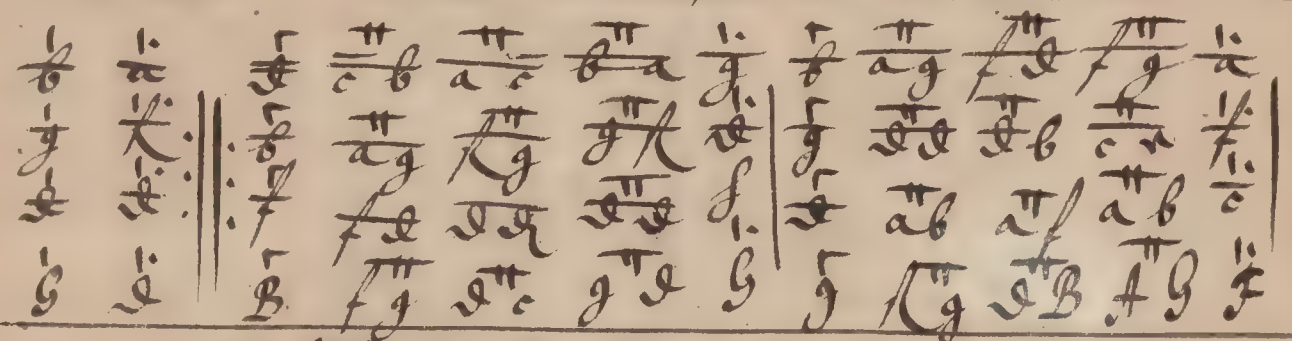 b a d c b a c b a g b a g f d f g a
g f b a g f g g f d g d d d b c f
d d f f d d d d d d a b a f a b c
G D B f g d c g d G g f g d B A G F